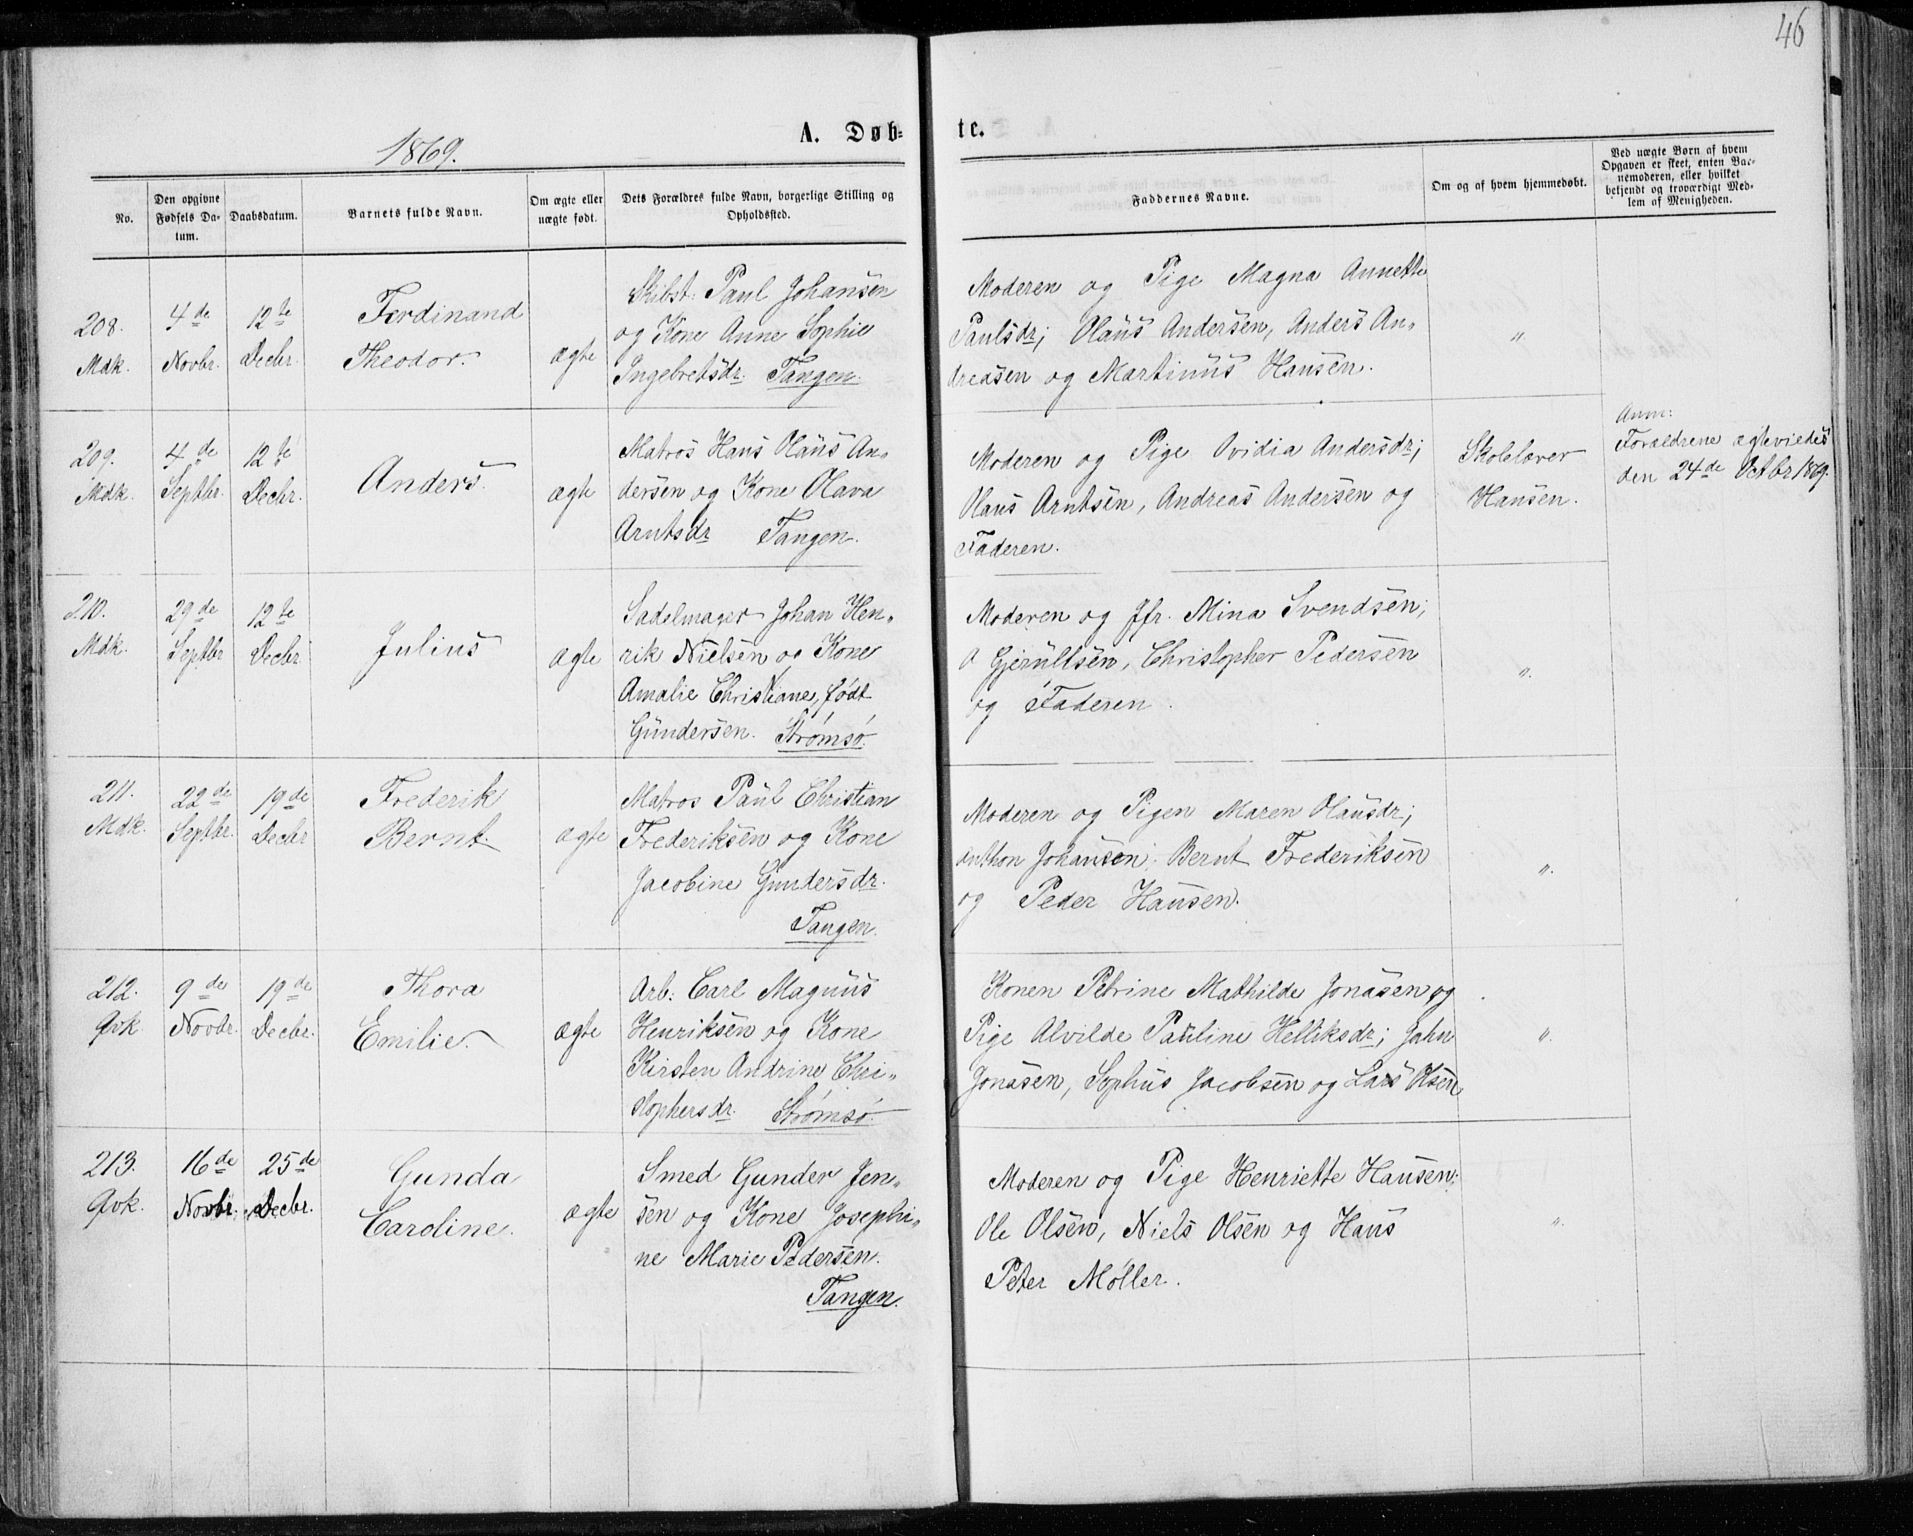 46
1869.
A. Døb-
te.
No.
Den opgivne
Fødsels Da-
tum.
Daabsdatum.
Barnets fulde Navn.
Om ægte eller
uægte født.
Dets Forældres fulde Navn, borgerlige Stilling og
Opholdssted.
Faddernes Navne.
Om og af hvem hjemmedøbt.
Ved uægte Børn af hvem
Opgaven er skeet, enten Bar-
nemoderen, eller hvilket
bekjendt og troværdigt Med-
lem af Menigheden.
208.
Mdk.
4de
Novbr.
12te
Decbr.
Ferdinand
Theodor.
ægte
Skibst: Paul Johansen
og Kone Anne Sophie
Ingebretsdr. Tangen.
Moderen og Pige Magna Annette
Paulsdr; Olaus Andersen, Anders An-
dreasen og Martinus Hansen.
"
209.
Mdk.
4de
Septbr.
12te
Decbr.
Anders.
ægte
Matros Hans Olaus An-
dersen og Kone Olava
Arntsdr Tangen.
Moderen og Pige Ovidia Andersdr;
Olaus Arntsen, Andreas Andersen og
Faderen.
Skolelærer
Hansen.
Anm:
Forældrene ægteviedes
den 24de Octbr 1869.
210.
Mdk.
29de
Septbr
12te
Decbr
Julius
ægte
Sadelmager Johan Hen-
rik Nielsen og Kone
Amalie Christiane, født
Gundersen. Strømsø.
Moderen og Jfr. Mina Svendsen;
O Gjerultsen, Christopher Pedersen
og Faderen.
"
211.
Mdk.
22de
Septbr.
19de
Decbr
Frederik
Bernt.
ægte
Matros Paul Christian
Frederiksen og Kone
Jacobine Gundersdr.
Tangen.
Moderen og Pigen Maren Olausdr;
Anthon Johansen; Bernt Frederiksen
og Peder Hansen.
"
212.
Qvk
9de
Novbr.
19de
Decbr.
Thora
Emilie.
ægte
Arb: Carl Magnus
Henriksen og Kone
Kirsten Andrine Chri-
stophersdr. Strømsø.
Konen Petrine Mathilde Jonasen og
Pige Alvilde Pauline Helliksdr; John
Jonasen, Sophus Jacobsen og Lars Olsen
"
213.
Qvk.
16de
Novbr.
25de
Decbr.
Gunda
Caroline.
ægte
Smed Gunder Jen-
sen og Kone Josephi-
ne Marie Pedersen.
Tangen.
Moderen og Pige Henriette Hansen;
Ole Olsen, Niels Olsen og Hans
Peter Møller.
"